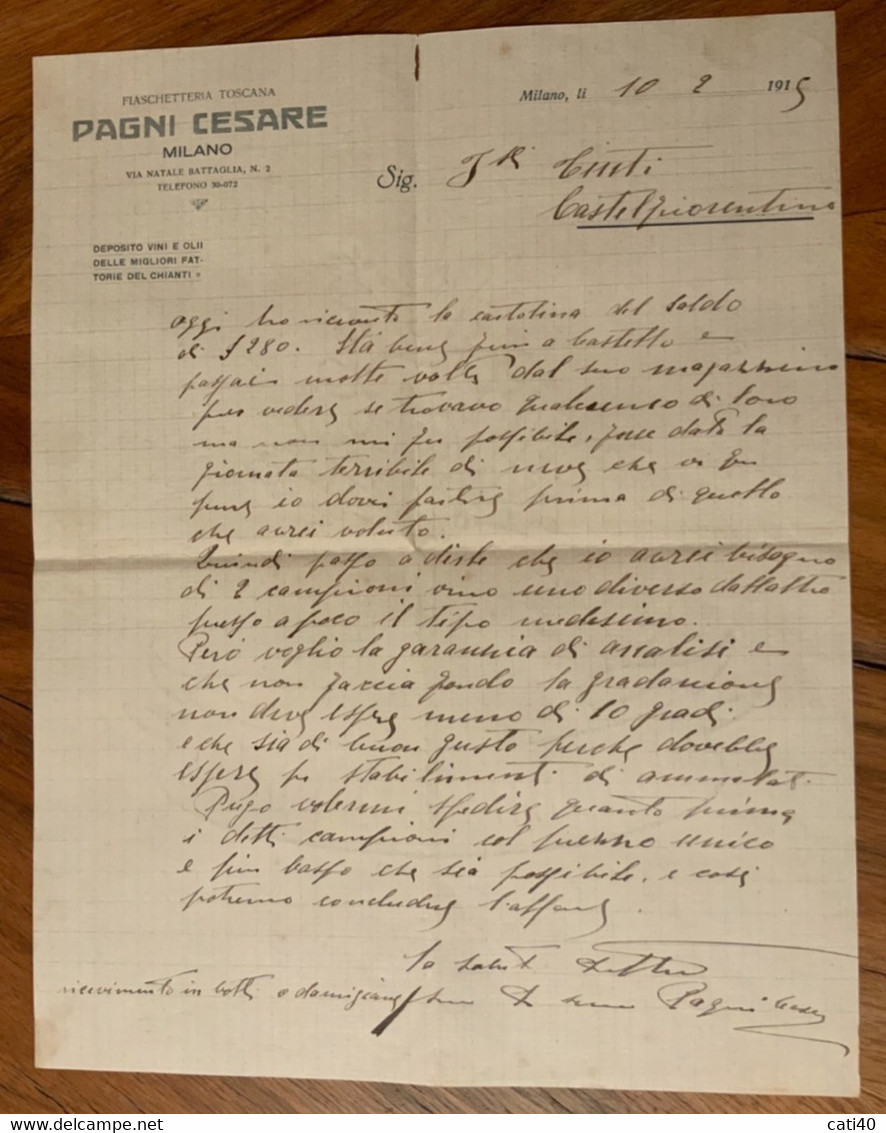 FIASCHETTERIA TOSCANA
PAGNI CESARE
MILANO
VIA NATALE BATTAGLIA, N. 2
TELEFONO 30-072
DEPOSITO VINI E OLII
DELLE MIGLIORI FAT-
TORIE DEL CHIANTI
Milano, li 10 2 1915
Sig. Flli Ciuti
Castelfiorentino
oggi ho ricevuto la cartolina del saldo
di £ 280. Sta bene fui a Castello e
passai molte volte dal suo magazzino
per vedere se trovavo qualcuno di loro
ma non mi fu possibile, forse data la
giornata terribile di neve che vi fu
pure io dovei partire prima di quello
che avrei voluto.
Quindi passo a dirle che io avrei bisogno
di 2 campioni vino uno diverso dall'altro
presso a poco il tipo medesimo.
Però voglio la garanzia di analisi e
che non faccia fondo la gradazione
non deve essere meno di 10 gradi.
e che sia di buon gusto perche dovebbe
essere p stabilimenti di ammalati.
Prego volermi spedire quanto prima
i detti campioni col prezzo unico
e più basso che sia possibile. e così
potremo concludere l'affare.
la saluto
ricevimento in botti o damigiane
Pagni Cesare
cati40